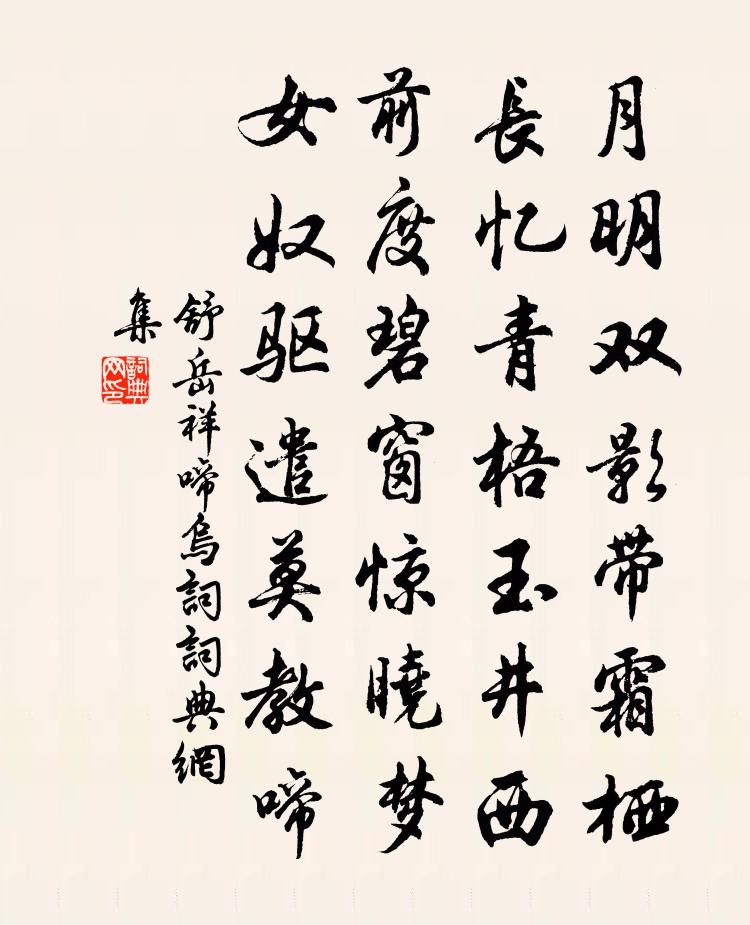 月明双影带霜栖
長忆青梧玉井西
前度碧窗惊曉梦
女奴驱遣莫教啼
舒岳祥啼烏詞詞典網
集
詞典网印